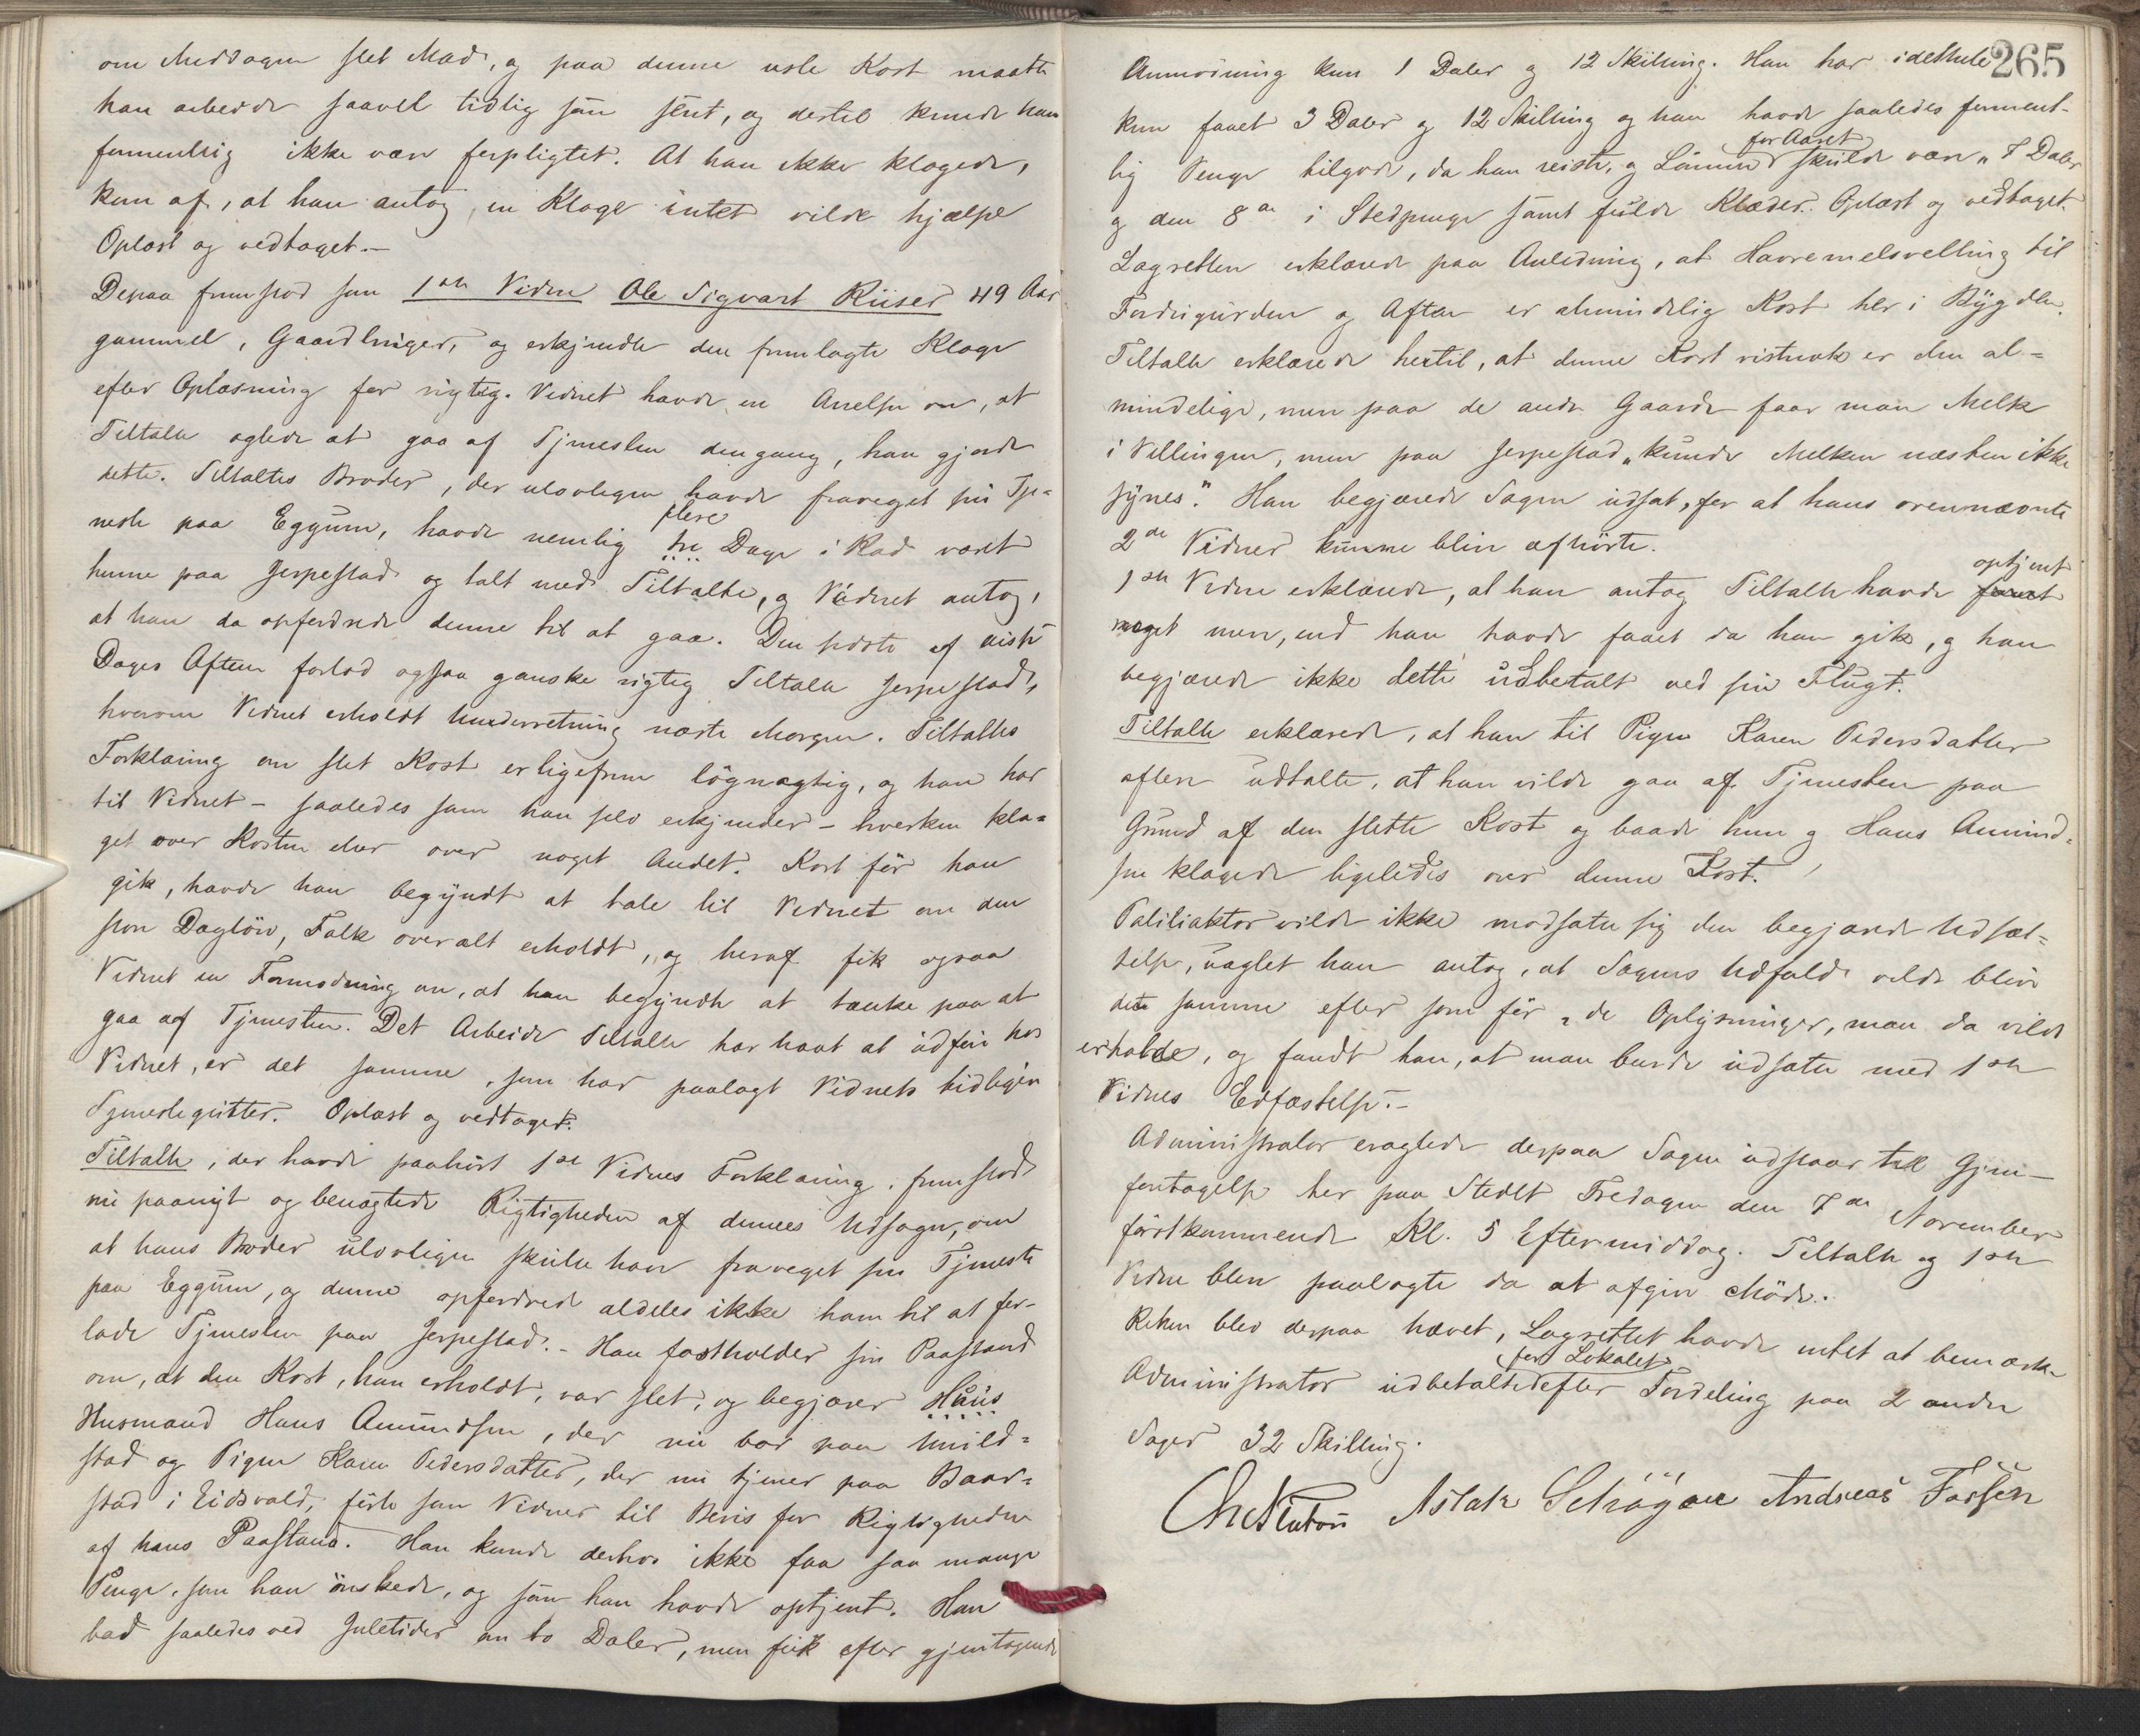 om Meddagen slet Mad, og paa denne usle Kost maatte
han arbeide saavel tidlig som sent, og dertil kunde han
formentlig ikke være forpligtet. At han ikke klagede,
kom af, at han antog, en Klage intet vilde hjælpe
Oplæst og vedtaget.-
Depaa fremstod som 1ste Vidne Ole Sigvart Riiser 49 Aar
gammel, Gaardbruger, og erkjendte den fremlagte Klage
efter Oplæsning for rigtig. Vidnet havde en Anelse om, at
Tiltalte agtede at gaa af Tjenesten dengang, han gjorde
dette. Tiltaltes Broder, der ulovligen havde fraveget sin Tje=
neste paa Eggum, havde nemlig tre flere Dage i Rad været
henne paa Jerpestad og talt med Tiltalte, og Vidnet antog,
at han da opfordrede denne til at gaa. Den sidste af disse
Dages Aften forlod ogsaa ganske rigtig Tiltalte Jerpestad,
hvorom Vidnet erholdt Underretning næste Morgen. Tiltaltes
Forklaring om slet Kost er ligefrem løgnagtig, og han har
til Vidnet - saaledes som han selv erkjender - hverken kla=
get over Kosten eller over noget Andet. Kort før han
gik, havde han begyndt at tale til Vidnet om den
store Dagløn, Folk overalt erholdt, og heraf fik ogsaa
Vidnet en Formodning om, at han begyndte at tænke paa at
gaa af Tjenesten. Det Arbeide Tiltalte har havt at udføre hos
Vidnet, er det samme, som har paalagt Vidnets tidligere
Tjenestegutter. Oplæst og vedtaget.
Tiltalte, der havde paahørt 1ste Vidnes Forklaring, fremstod
nu paanyt og benægtede Rigtigheden af dennes Udsagn, om
at hans Broder ulovligen skulle have fraveget sin Tjeneste
paa Eggum, og denne opfordrede aldeles ikke ham til at for-
lade Tjenesten paa Jerpestad. - Han fastholder sin Paastand
om, at den Kost, han erholdt, var slet, og begjærer Hans
Husmand Hans Amundsen, der nu bor paa Unild=
stad og Pigen Karen Pedersdatter, der nu tjener paa Baar=
stad i Eidsvold, førte som Vidner til Bevis for Rigtigheden
af hans Paastand. Han kunde derhos ikke faa saa mange
Penge, som han ønskede, og som han havde optjent. Han
bad saaledes ved Juletider om to Daler, men fik efter gjentagende
265
Anmodning kun 1 Daler og 12 Skilling. Han har idethele
kun faaet 3 Daler og 12 Skilling og han havde saaledes forment-
lig Penge tilgode, da han reiste, og Lønnen for Aaret skulde være "7 Daler
og den 8de i Stedpenge samt fulde Klæder. Oplæst og vedtaget.
Lagretten erklærede paa Anledning, at Havremelsvelling til
Fordugurden og Aften er almindelig Kost her i Bygden.
Tiltalte erklærede hertil, at denne Kost vistnok er den al=
mindelige, men paa de andre Gaarde faar man Melk
i Vellingen, men paa Jerpestad "kunde Melken næsten ikke
synes". Han begjærede Sagen udsat, for at hans ovennævnte
2de Vidner kunne blive afhørte.
1ste Vidne erklærede, at han antog Tiltalte havde faaet optjent
noget mere, end han havde faaet da han gik, og han
begjærede ikke dette udbetalt ved sin Flugt.
Tiltalte erklærede, at han til Pigen Karen Pedersdatter
oftere udtalte, at han vilde gaa af Tjenesten paa
Grund af den slette Kost og baade hun og Hans Amund=
sen klagede ligeledes over denne Kost.
Politiaktor vilde ikke modsætte sig den begjærede Udsæt=
telse, uagtet han antog, at Sagens Udfald vilde blive
det samme efter som før de Oplysninger, man da vilde
erholde, og fandt han, at man burde udsætte med 1ste
Vidnes Edfæstelse.-
Administrator eragtede derpaa Sagen udstaar til Gjen-
foretagelse her paa Stedet Fredagen den 7de November
førstkommende Kl. 5 Eftermiddag. Tiltalte og 1ste
Vidne bleve paalagte da at afgive Møde.
Retten blev derpaa hævet, Lagrettet havde intet at bemærke
Administrator udbetalte for Lokalet efter Fordeling paa 2 andre
Sager 32 Skilling.
Aslak Andreas